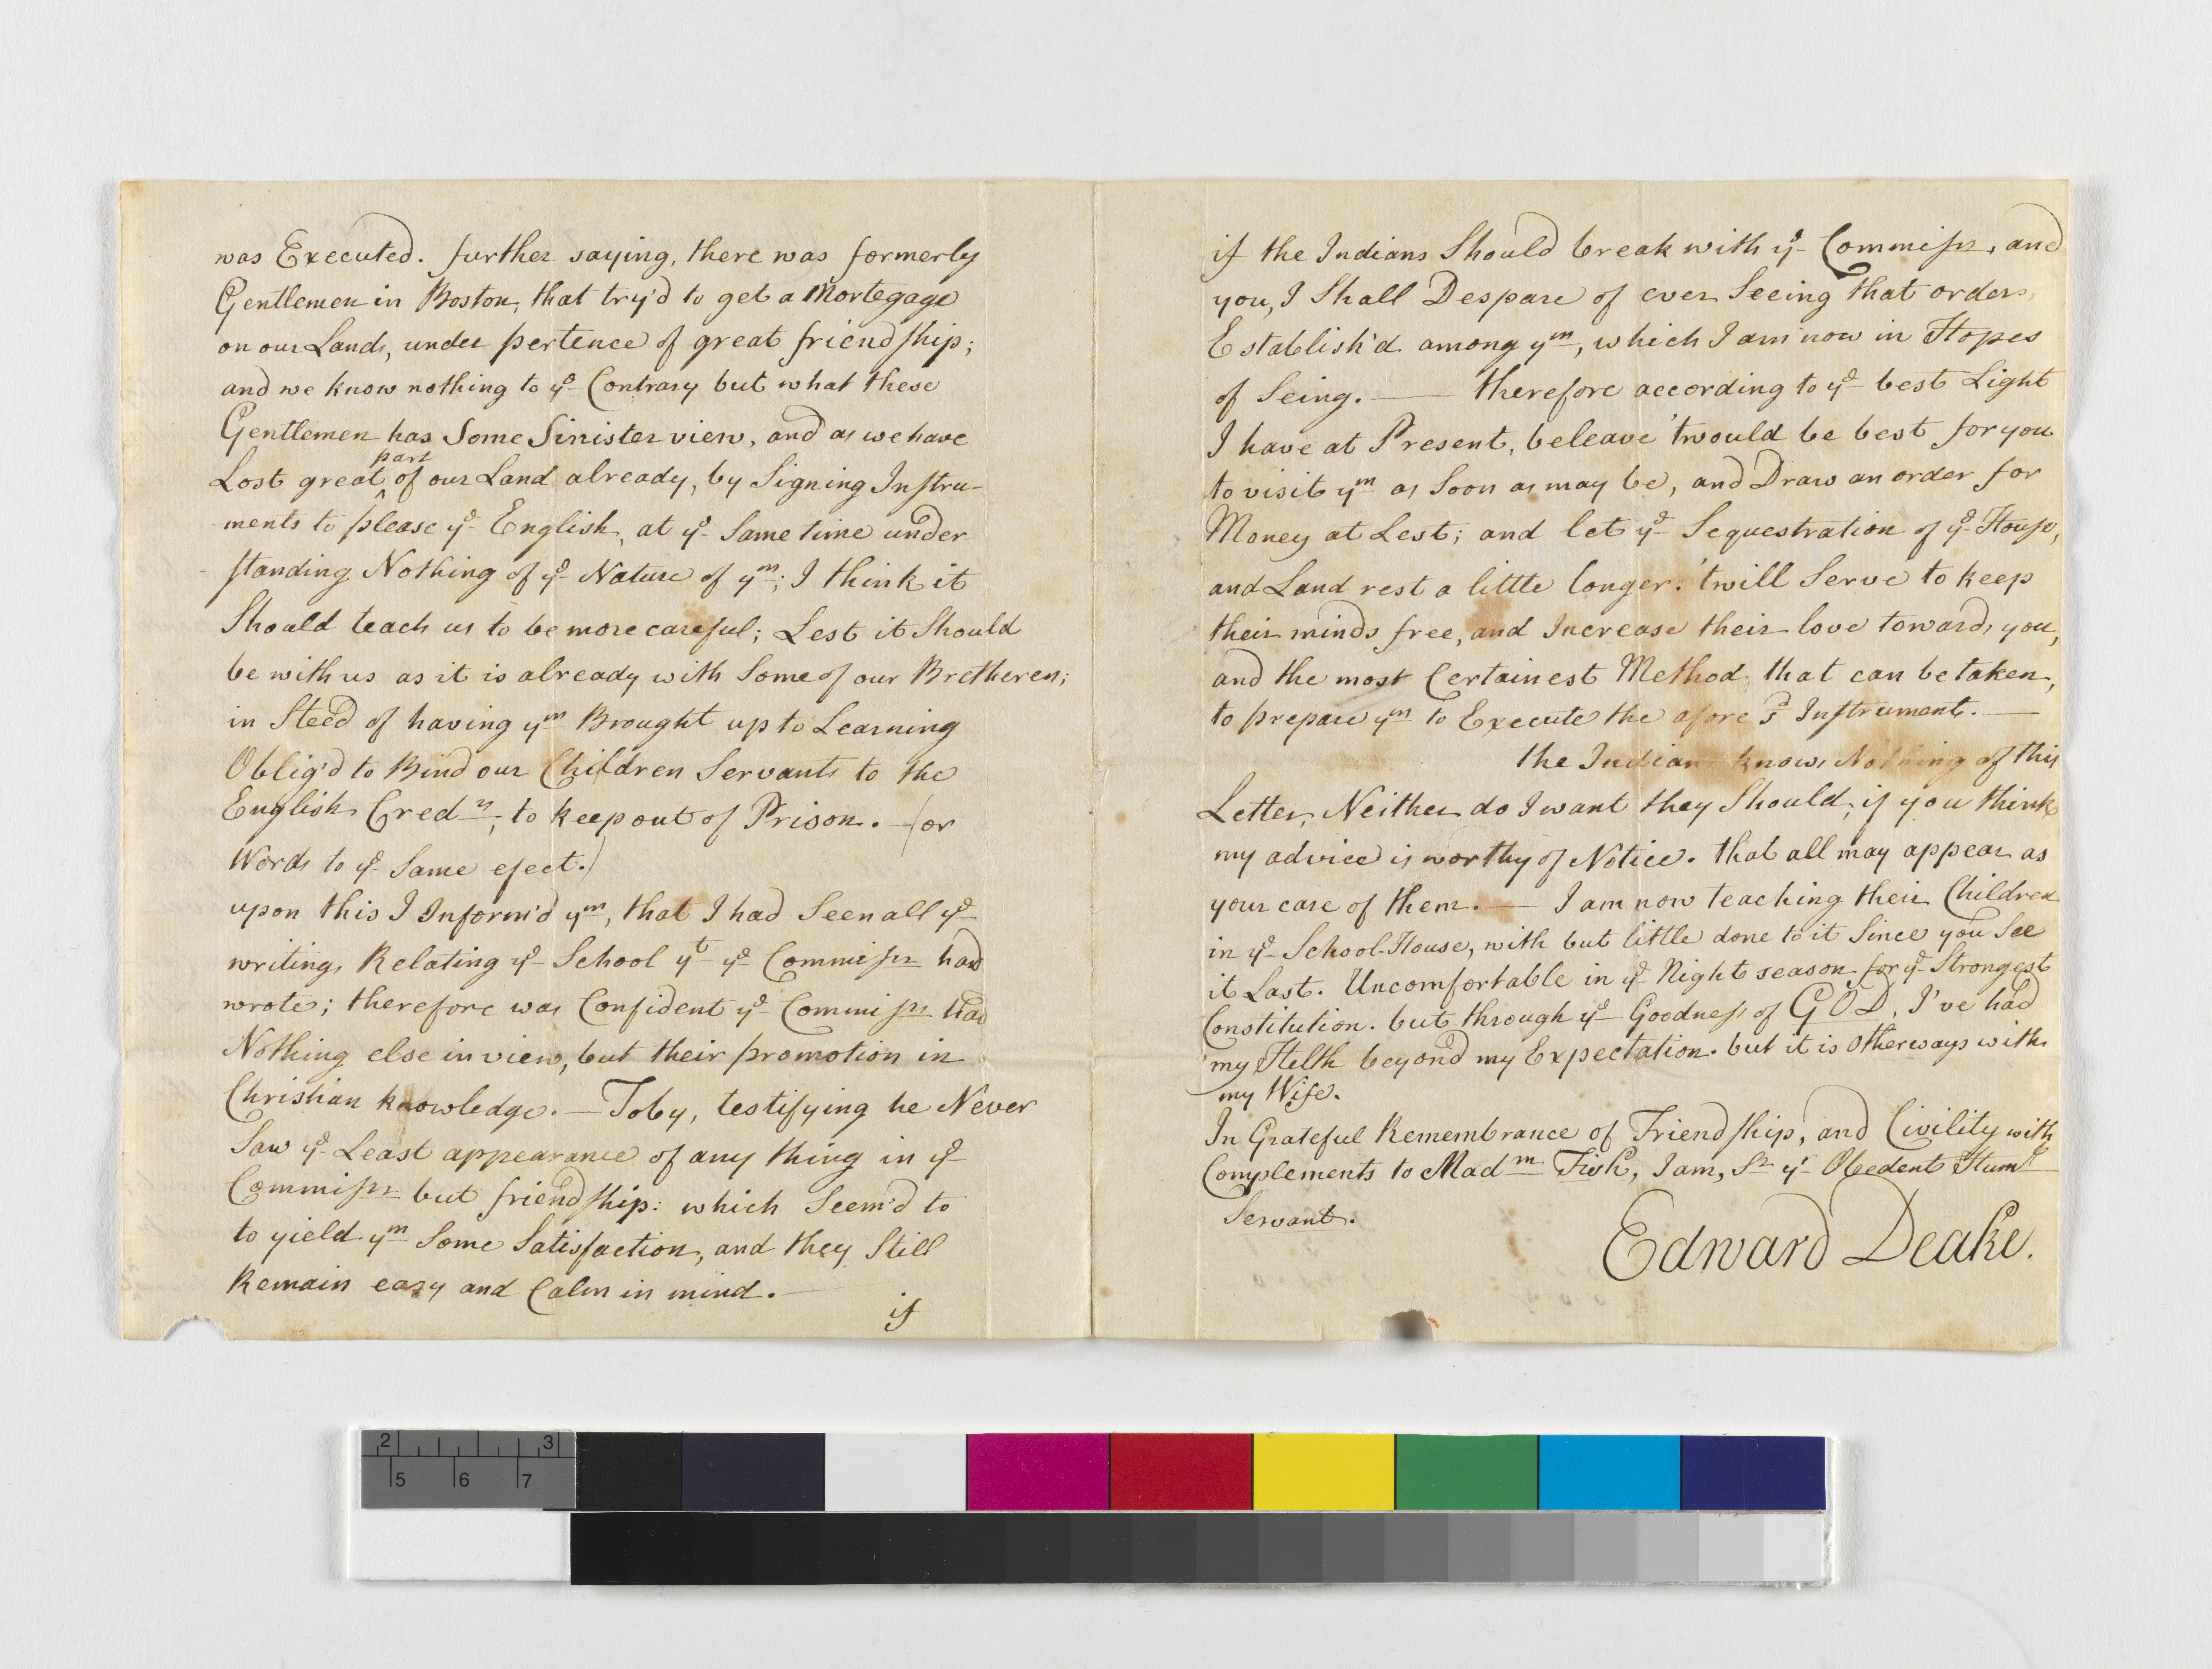 was Executed. further saying, there was formerly
Gentlemen in Boston, that try'd to get a Mortegage
on our Lands, under pertence of great friendship;
and we know nothing to ye Contrary but what these
Gentlemen has Some Sinister view, and as we have
Lost great part of our Land already, by Signing Instru-
ments to please ye English, at ye Same time under
standing Nothing of ye Nature of ym; I think it
Should teach us to be more careful; Lest it Should
be with us as it is already with Some of our Bretheren;
in Steed of having ym Brought up to Learning
Oblig'd to Bind our Children Servants to the
English Credrs, to keep out of Prison. — (or
Words to ye Same efect.)
upon this I Inform'd ym, that I had Seen all ye
writings Relating ye School yt ye Commissrs had
wrote; therefore was Confident ye Commissrs had
Nothing else in view, but their promotion in
Christian knowledge. — Toby, testifying he Never
Saw ye Least appearance of any thing in ye
Commissrs but friendship: which Seem'd to
to yield ym Some Satisfaction, and they Still
Remain easy and Calm in mind. —
if
if the Indians Should break with ye Commissrs, and
you, I Shall Despare of ever Seeing that orders
Establish'd among ym, which I am now in Hopes
of Seing. — therefore according to ye best Light
I have at Present, beleave 'twould be best for you
to visit ym as Soon as may be, and Draw an order for
Money at Lest; and let ye Sequestration of ye House,
and Land rest a little longer. 'twill Serve to keep
their minds free, and Increase their love towards you,
and the most Certainest Method that can be taken,
to prepare ym to Execute the afore sd Instrument. —
the Indians knows Nothing of this
Letter, Neither do I want they Should, if you think
my advice is worthy of Notice. that all may appear as
your care of them. — I am now teaching their Children
in ye School-House, with but little done to it Since you See
it Last. Uncomfortable in ye Night season for ye Strongest
Constitution. but through ye Goodness of GOD, I've had
my Helth beyond my Expectation. but it is Otherways with
my Wife.
In Grateful Remembrance of Friendship, and Civility with
Complements to Madm Fish, I am, Sr yr Obedent Humle
Servant.
Edward Deake.
2 3
5 6 7